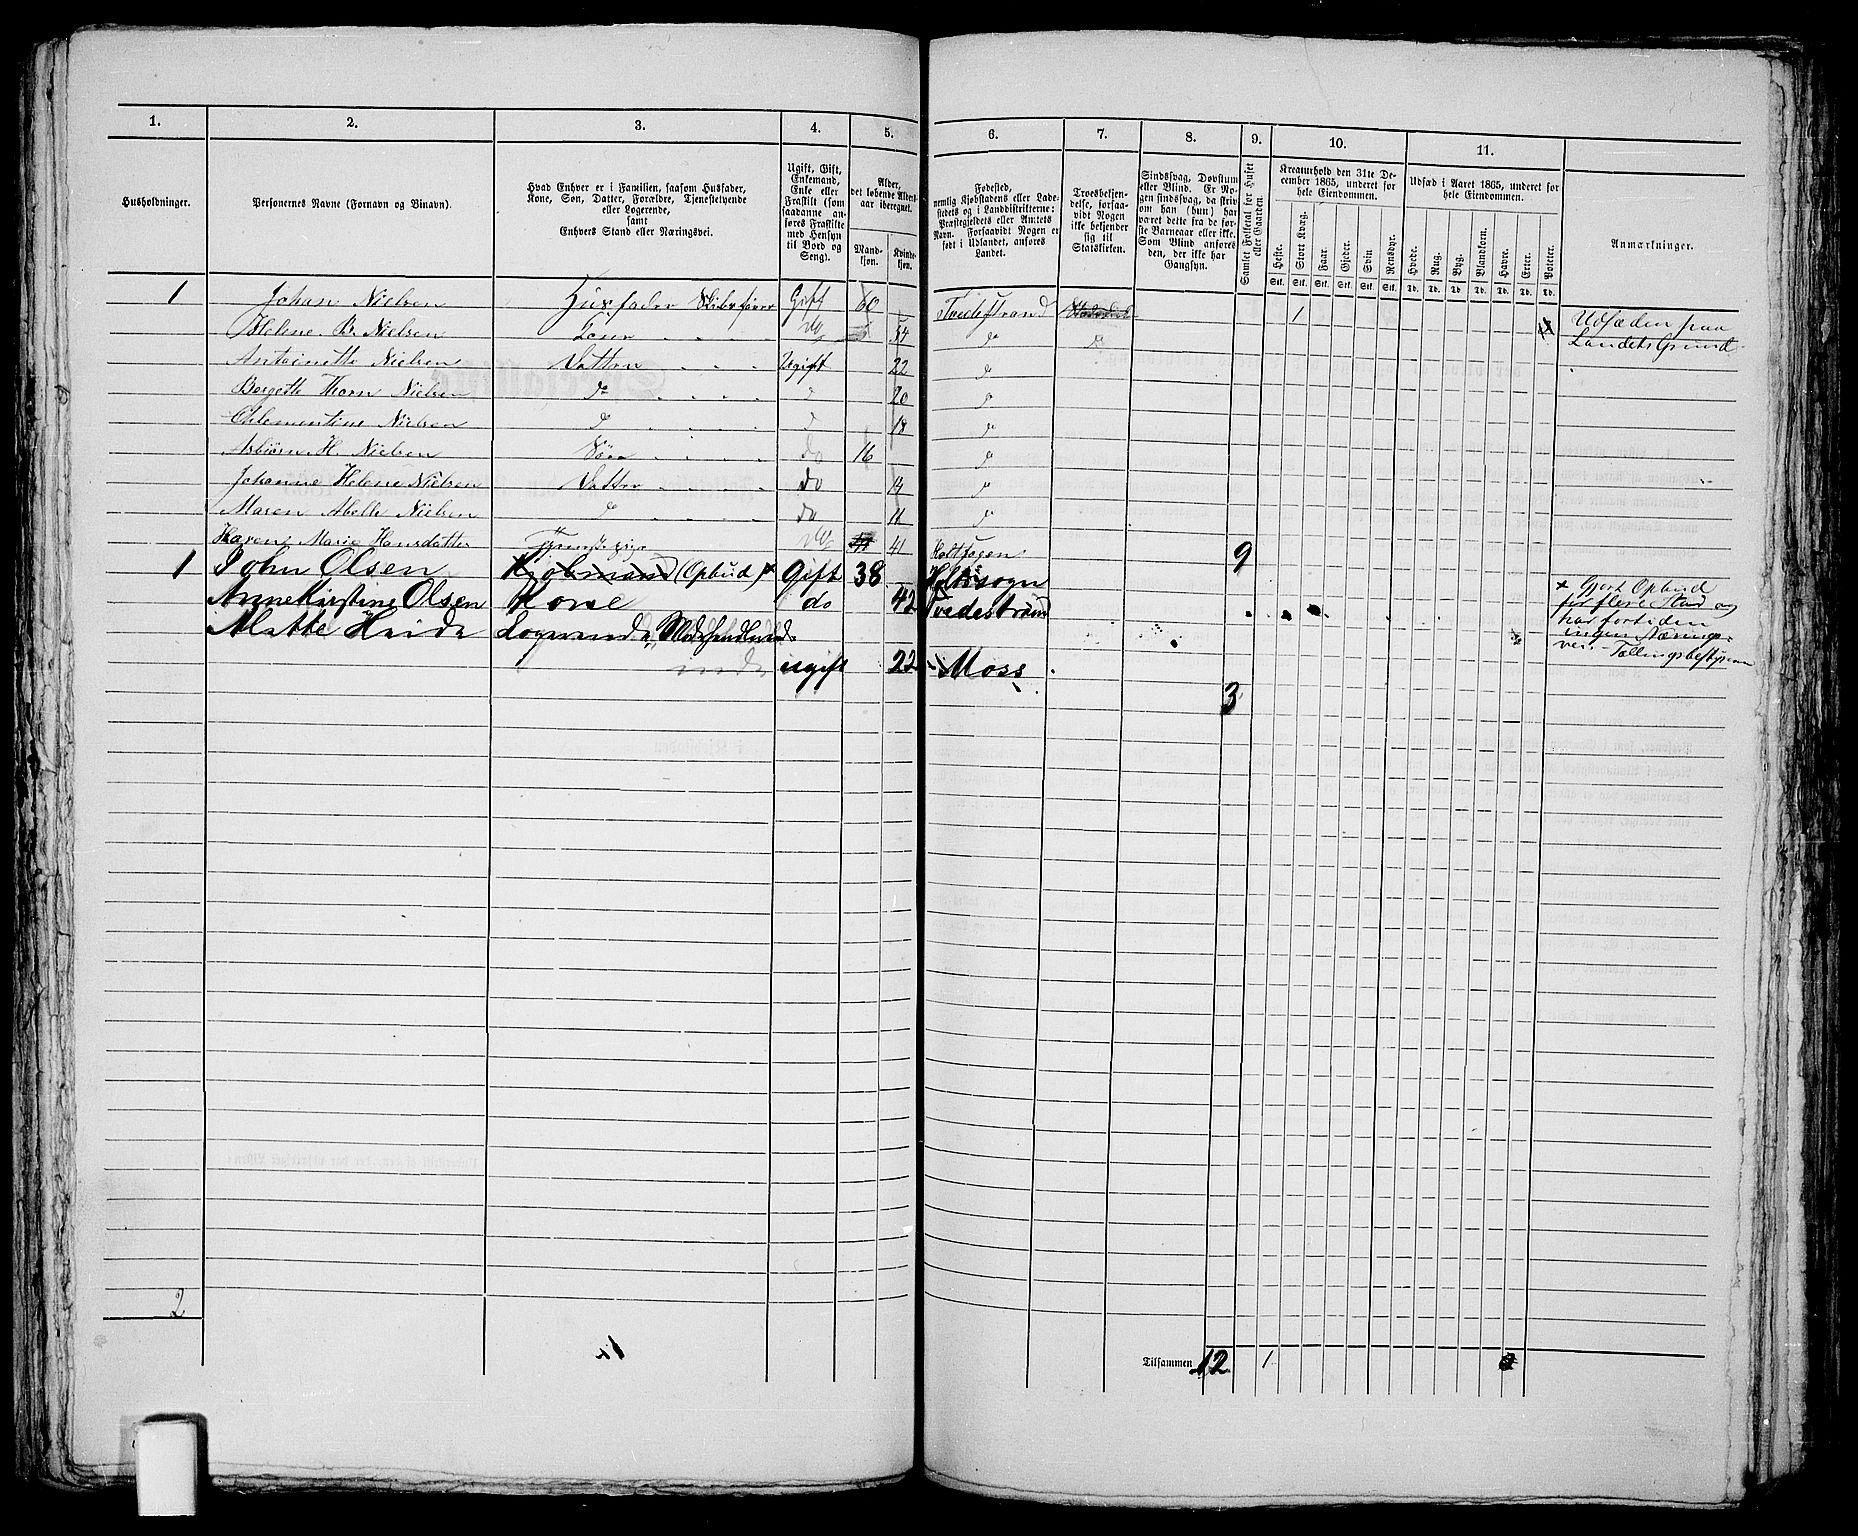 1. 2. 3. 4. 5. 6. 7. 8. 9. 10. 11.
Husholdninger.
Personernes Navne (Fornavn og Binavn).
Hvad Enhver er i Familien, saasom Husfader,
Kone, Søn, Datter, Forældre, Tjenestetyende
eller Logerende,
samt
Enhvers Stand eller Næringsvei.
Ugift, Gift,
Enkemand,
Enke eller
Fraskilt (som
saadanne an-
føres Fraskilte
med Hensyn
til Bord og
Seng).
Alder,
det løbende Alders-
aar iberegnet.
Mand-
kjøn.
Kvinde-
kjøn.
Fødested,
nemlig Kjøbstadens eller Lade-
stedets og i Landdistrikterne:
Præstegjeldets eller Amtets
Navn. Forsaavidt Nogen er
født i Udlandet, anføres
Landet.
Troesbekjen-
delse, forsaa-
vidt Nogen
ikke bekjender
sig til
Statskirken.
Sindssvag, Døvstum
eller Blind. Er No-
gen sindssvag, da skriv
om han (hun) har
været dette fra de før-
ste Barneaar eller ikke.
Som Blind anføres
den, der ikke har
Gangsyn.
Samlet Folketal for Huset
eller Gaarden.
Kreaturhold den 31te De-
cember 1865, underet for
hele Eiendommen.
Heste. Stort Kvæg. Faar. Gjeder. Svin Rensdyr.
Stk. Stk. Stk. Stk. Stk. Stk.
Udsæd i Aaret 1865, underet for
hele Eiendommen.
Hvede. Rug. Byg. Blandkorn. Havre. Erter. Poteter.
Td. Td. Td. Td. Td. Td. Td.
Anmærkninger.
1 Johan Nielsen Husfader Skibsfører Gift 60 Tvedestrand 1 Udsæden paa
Helene B. Nielsen Kone do 54 do Landets Grund
Antoinette Nielsen Datter Ugift 22 do
Bergette Thorn Nielsen do do 20 do
Clementine Nielsen do do 18 do
Asbiørn H. Nielsen Søn do 16 do
Johanne Helene Nielsen Datter do 14 do
Maren Abelle Nielsen do do 11 do
Karen Marie Hansdatter Tjenestepige do 41 Holt Sogn 9
1 John Olsen Kjøbmand (Opbud) × Gift 38 Holt sogn
Anne Kirstine Olsen Kone do 42 Tvedestrand
Mette Heide Logerende, Modehandlerinde ugift 22 Moss
3
× Gjort Opbud
for flere Aar og
har fortiden
ingen Nærings-
vei. Tællingsbestyreren
2
12
Tilsammen 12 1